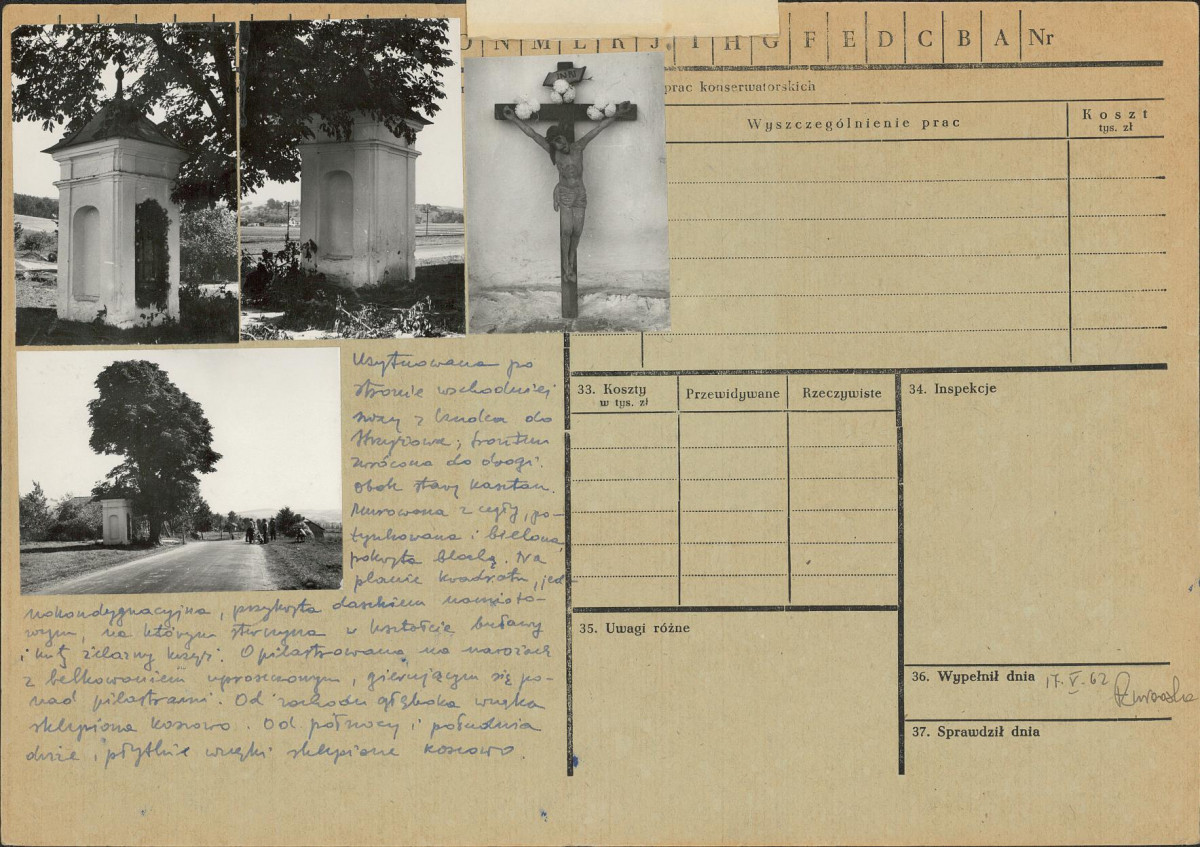 O N M L K J I H G F E D C B A Nr
prac konserwatorskich
Wyszczególnienie prac
Koszt
tys. zł
Usytuowana po
stronie wschodniej
szosy z do
Strzyżowa; frontem
zwrócona do drogi.
obok stary kasztan.
Murowana z cegły, po-
tynkowana i bielona,
pokryta blachą. Na
planie kwadratu, jed-
nokondygnacyjna, przykryta daszkiem namioto-
wym, na którym sterczyna w kształcie buławy
i kuty żelazny krzyż. Opilastrowana na narożach
z belkowaniem uproszczonym, gierującym się po-
nad pilastrami. Od zachodu głęboka wnęka
sklepiona koszowo. Od północy i południa
duże i płytkie wnęki sklepione koszowo.
33. Koszty
w tys. zł
Przewidywane
Rzeczywiste
34. Inspekcje
35. Uwagi różne
36. Wypełnił dnia 17.V.62
37. Sprawdził dnia